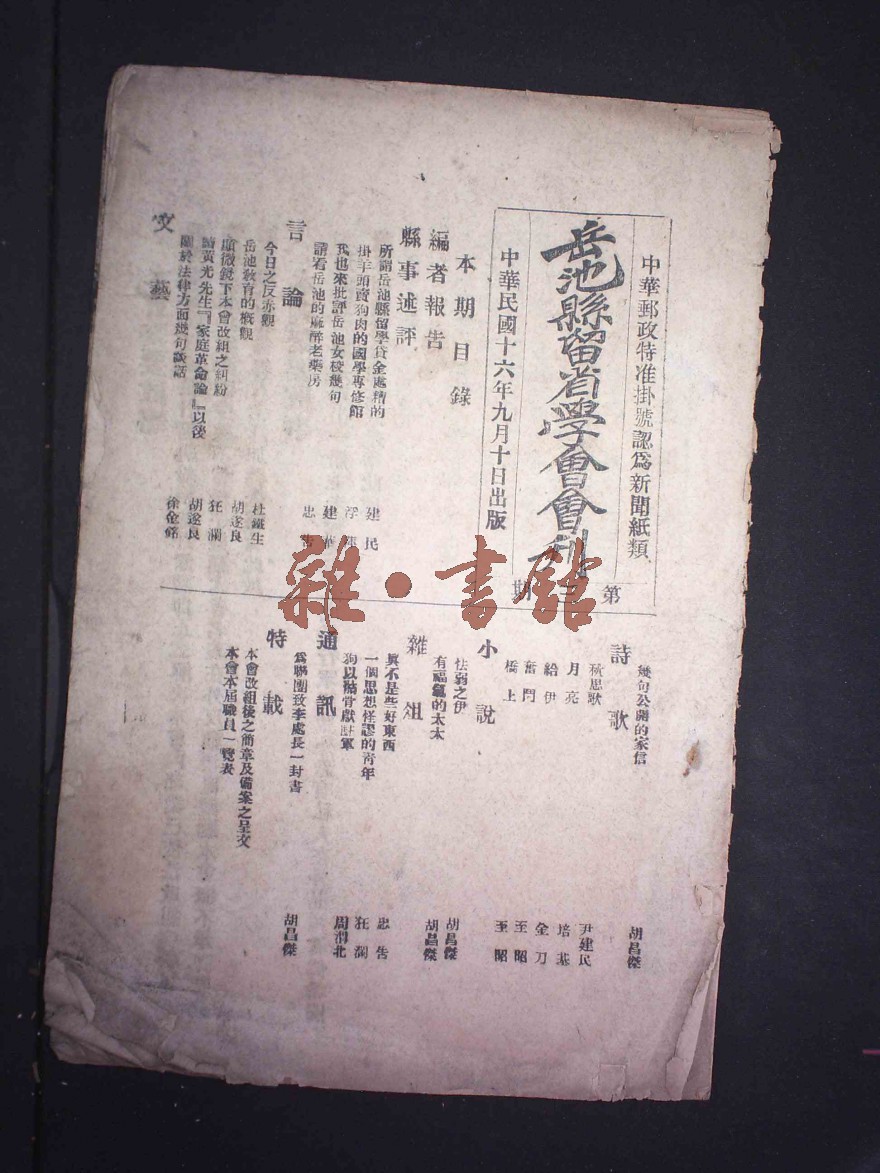 中華郵政特准掛號認爲新聞紙類
岳池縣留省學會會刊
第 期
中華民國十六年九月十日出版
本期目錄
編者報告
縣事述評
所謂岳池縣留學貸金處精的 建民
掛羊頭賣狗肉的國學專修館 浮
我也來批評岳池女校幾句 建華
請看岳池的麻醉老藥房 忠告
言論
今日之反赤觀 杜鐵生
岳池敎育的槪觀 胡遂良
顯微鏡下本會改組之糾紛 狂瀾
讀黃光先生『家庭革命論』以後 胡遂良
關於法律方面幾句談話 徐金銘
文藝
幾句公開的家信 胡昌傑
詩歌
秋思歌 尹建民
月亮 培基
給伊 金刀
奮鬥 至昭
橋上 至昭
小說
怯弱之伊 胡昌傑
有福氣的太太 胡昌傑
雜俎
眞不是些好東西 忠告
一個思想怪謬的靑年 狂瀾
狗以猫骨獻駐軍 周渭北
通訊
爲聯團致李處長一封書 胡昌傑
特載
本會改組後之簡章及備案之呈文
本會本屆職員一覽表
雜·書館